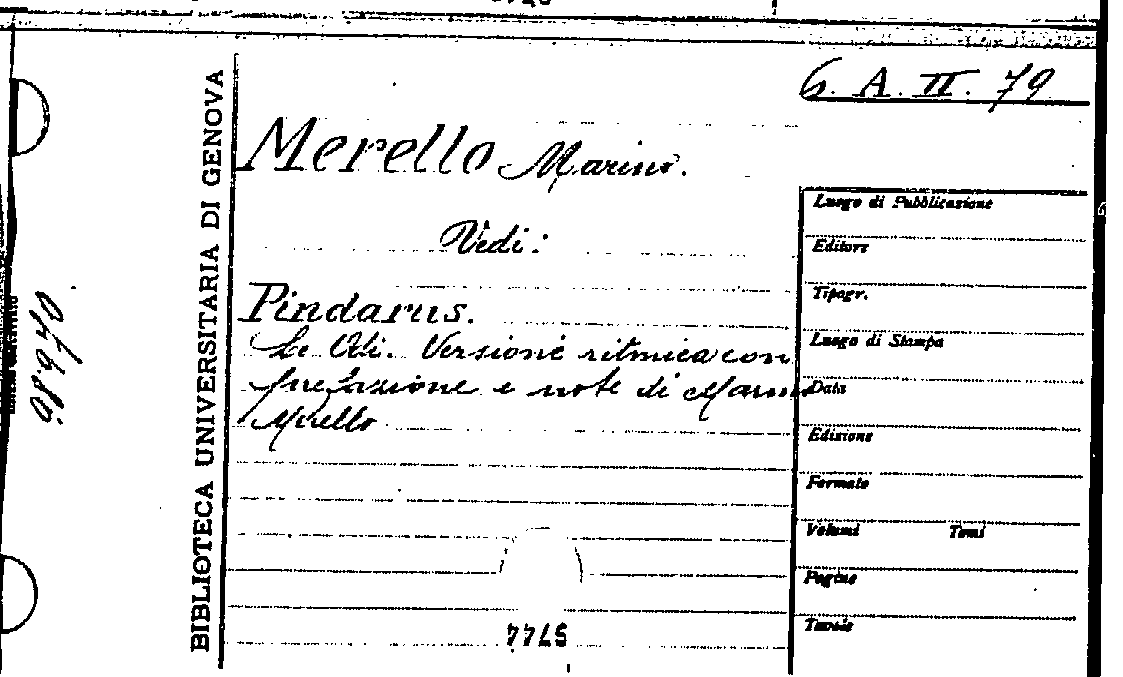 6. A. II. 79
BIBLIOTECA UNIVERSITARIA DI GENOVA
Merello Marino.
Vedi:
Pindarus.
Le Odi. Versione ritmica con
prefazione e note di Marino
Merello
Luogo di Pubblicazione
Editore
Tipogr.
Luogo di Stampa
Data
Edizione
Formato
Volumi Tomi
Pagine
Tavole
5744